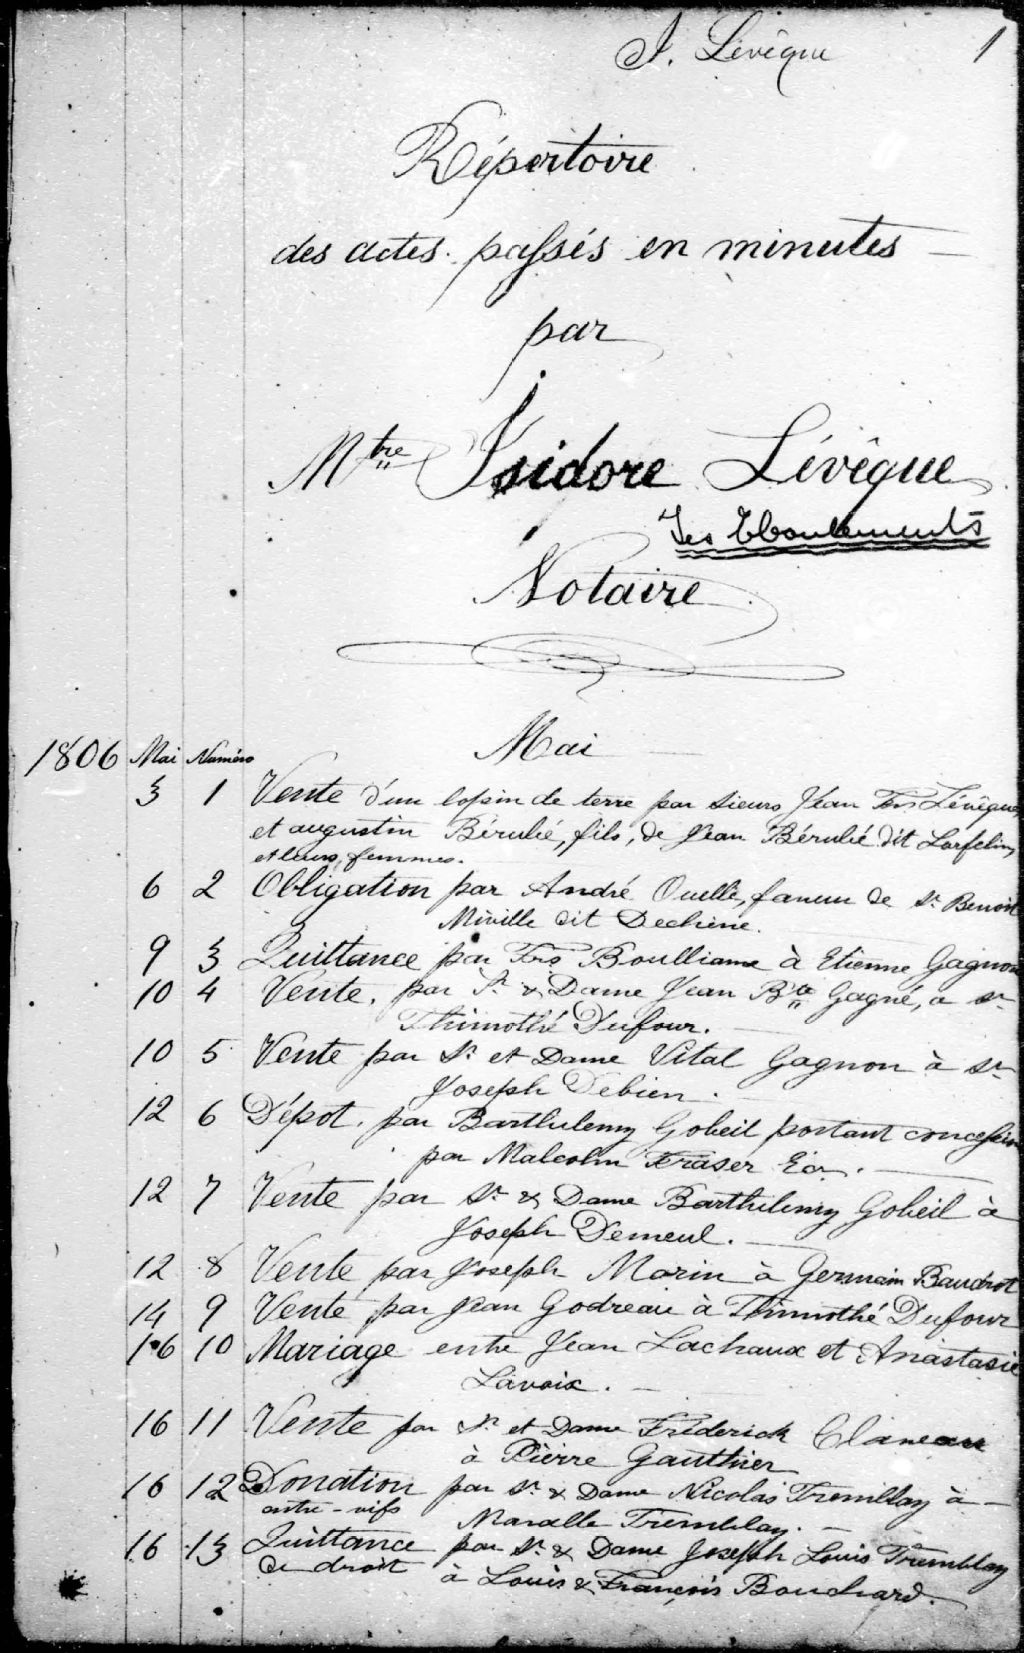 I. Lévêque 1
Répertoire
des actes passés en minutes
par
Mtre Isidore Lévêque
Les Eboulements
Notaire
Mai
1806 Mai Numéro
3 1 Vente d'un lopin de terre par Sieurs Jean Frs Lévêque
et augustin Bérulié, fils, de Jean Bérulié dit Larfelin,
et leurs femmes.
6 2 Obligation par André Ouellé, faveur de Sr Benoit
Miville dit Dechène.
9 3 Quittance par Frs Boulliame à Etienne Gagnon
10 4 Vente. par Sr & Dame Jean Bte Gagné, a sr
Thimothé Dufour.
10 5 Vente par Sr et Dame Vital Gagnon à sr
Joseph Debien.
12 6 Dépot. par Barthelemy Gobeil portant concession
par Malcolm Fraser Ecr.
12 7 Vente par Sr & Dame Barthelemy Gobeil à
Joseph Demeul.
12 8 Vente par Joseph Morin à Germain Baudrot
14 9 Vente par Jean Godreau à Thimothé Dufour
16 10 Mariage entre Jean Lachaux et Anastasie
Lavoix.
16 11 Vente par Sr et Dame Fréderick
à Pierre Gauthier
16 12 Donation par Sr & Dame Nicolas Tremblay à
entre-vifs Maralle Tremblay.
16 13 Quittance par Sr & Dame Joseph Louis Tremblay
de droit à Louis & François Bouchard.